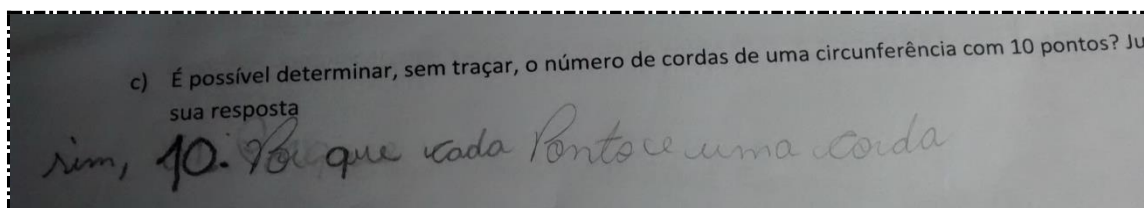 c) É possível determinar, sem traçar, o número de cordas de uma circunferência com 10 pontos? Ju
sua resposta
sim, 10. Por que cada Ponto e uma corda